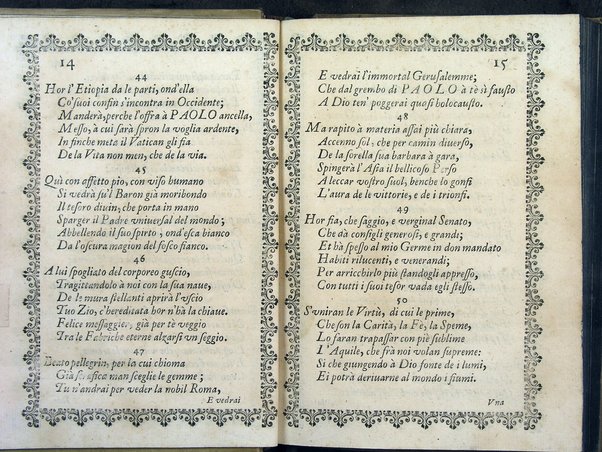 14
44
Hor l'Etiopia da le parti, ond'ella
Co'suoi confin s'incontra in Occidente;
Manderà, perche l'offra à PAOLO ancella,
Messo, à cui sarà spron la voglia ardente,
In finche meta il Vatican gli sia
De la Vita non men, che de la via.
45
Quì con affetto pio, con viso humano
Si vedrà su'l Baron già moribondo
Il tesoro diuin, che porta in mano
Sparger il Padre vniuersal del mondo;
Abbellendo il suo spirto, ond'esca bianco
Da l'oscura magion del fosco fianco.
46
A lui spogliato del corporeo guscio,
Tragittandolo à noi con la sua naue,
De le mura stellanti aprirà l'vscio
Tuo Zio, c'hereditata hor n'hà la chiaue.
Felice messaggier, già per te veggio
Tra le Fabriche eterne alzarsi vn seggio.
47
Beato pellegrin, per la cui chioma
Già man sceglie le gemme;
Tu n'andrai per veder la nobil Roma,
E vedrai
15
E vedrai l'immortal Gerusalemme;
Che dal grembo di PAOLO à tè sì fausto
A Dio ten' poggerai quasi holocausto.
48
Ma rapito à materia assai più chiara,
Accenno sol, che per camin diuerso,
De la sorella sua barbara à gara,
Spingerà l'Asia il bellicoso Perso
A leccar vostro suol, benche lo gonfi
L'aura de le vittorie, e de i trionfi.
49
Hor sia, che saggio, e verginal Senato,
Che dà consigli generosi, e grandi;
Et hà spesso al mio Germe in don mandato
Habiti rilucenti, e venerandi;
Per arricchirlo più standogli appresso,
Con tutti i suoi tesor vada egli stesso.
50
S'vniran le Virtù, di cui le prime,
Che son la Carità, la Fè, la Speme,
Lo faran trapassar con piè sublime
L'Aquile, che frà noi volan supreme:
Sì che giungendo à Dio fonte de i lumi,
Ei potrà deriuarne al mondo i fiumi.
Vna